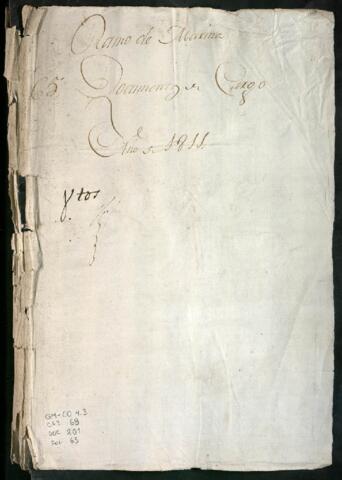 Ramo de Marina
65 Documentos de Cargo
Año de 1811
GM-CO 4.3
CAJ 69
DOC 201
Fol 65